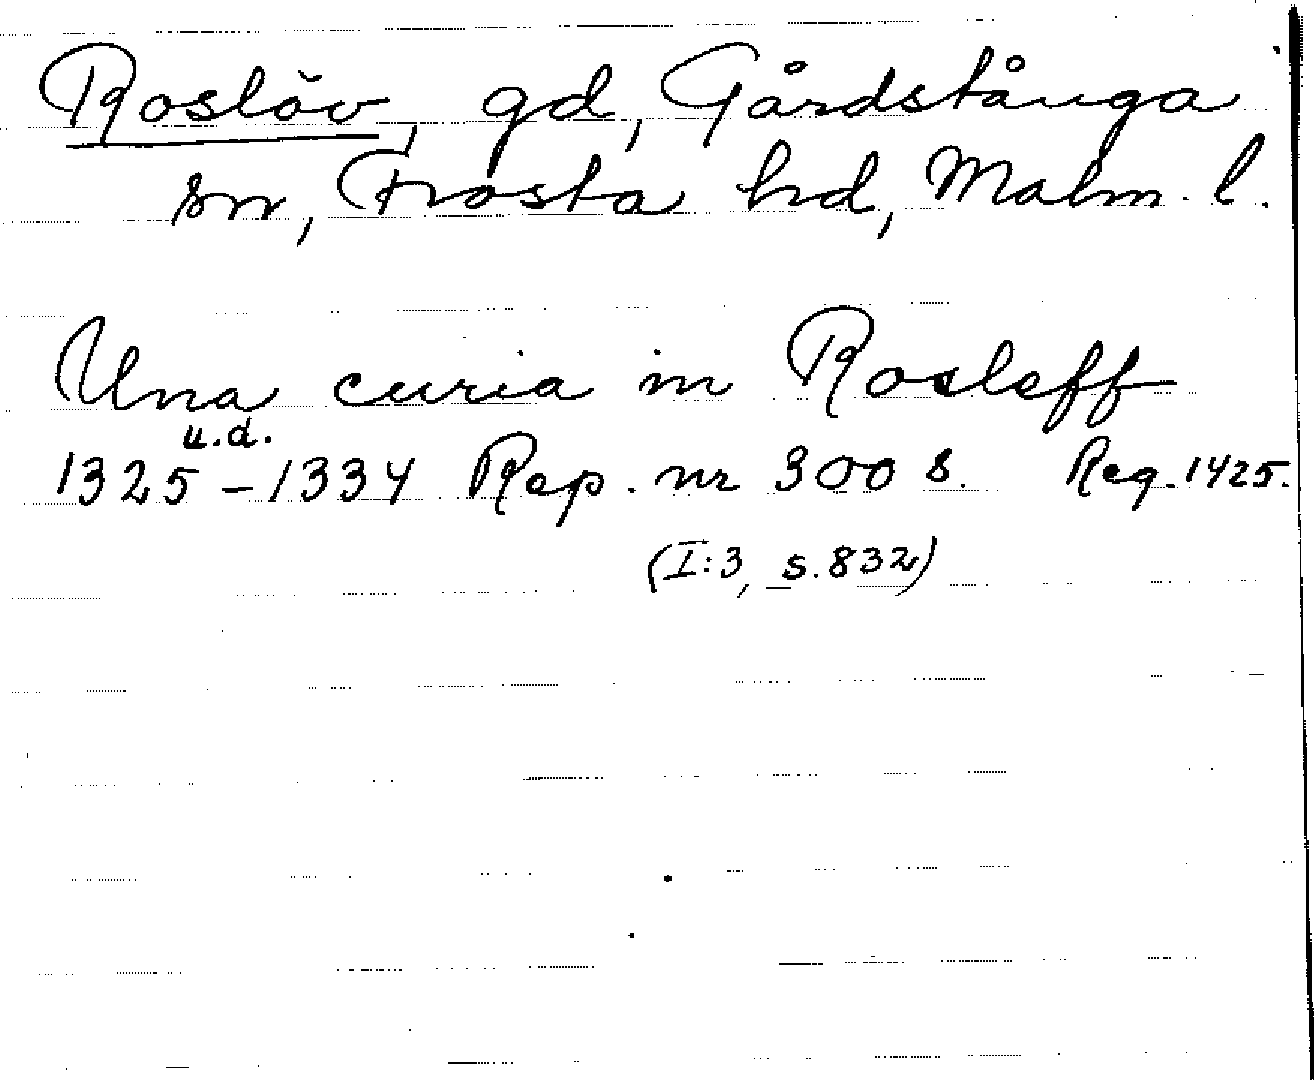 Roslöv, gd, Gårdstånga
sn, Frosta hd, Malm. l.
Una curia in Rosleff
u.d.
1325-1334 Rep. nr 300 8. Reg. 1425.
(I:3, s. 832)